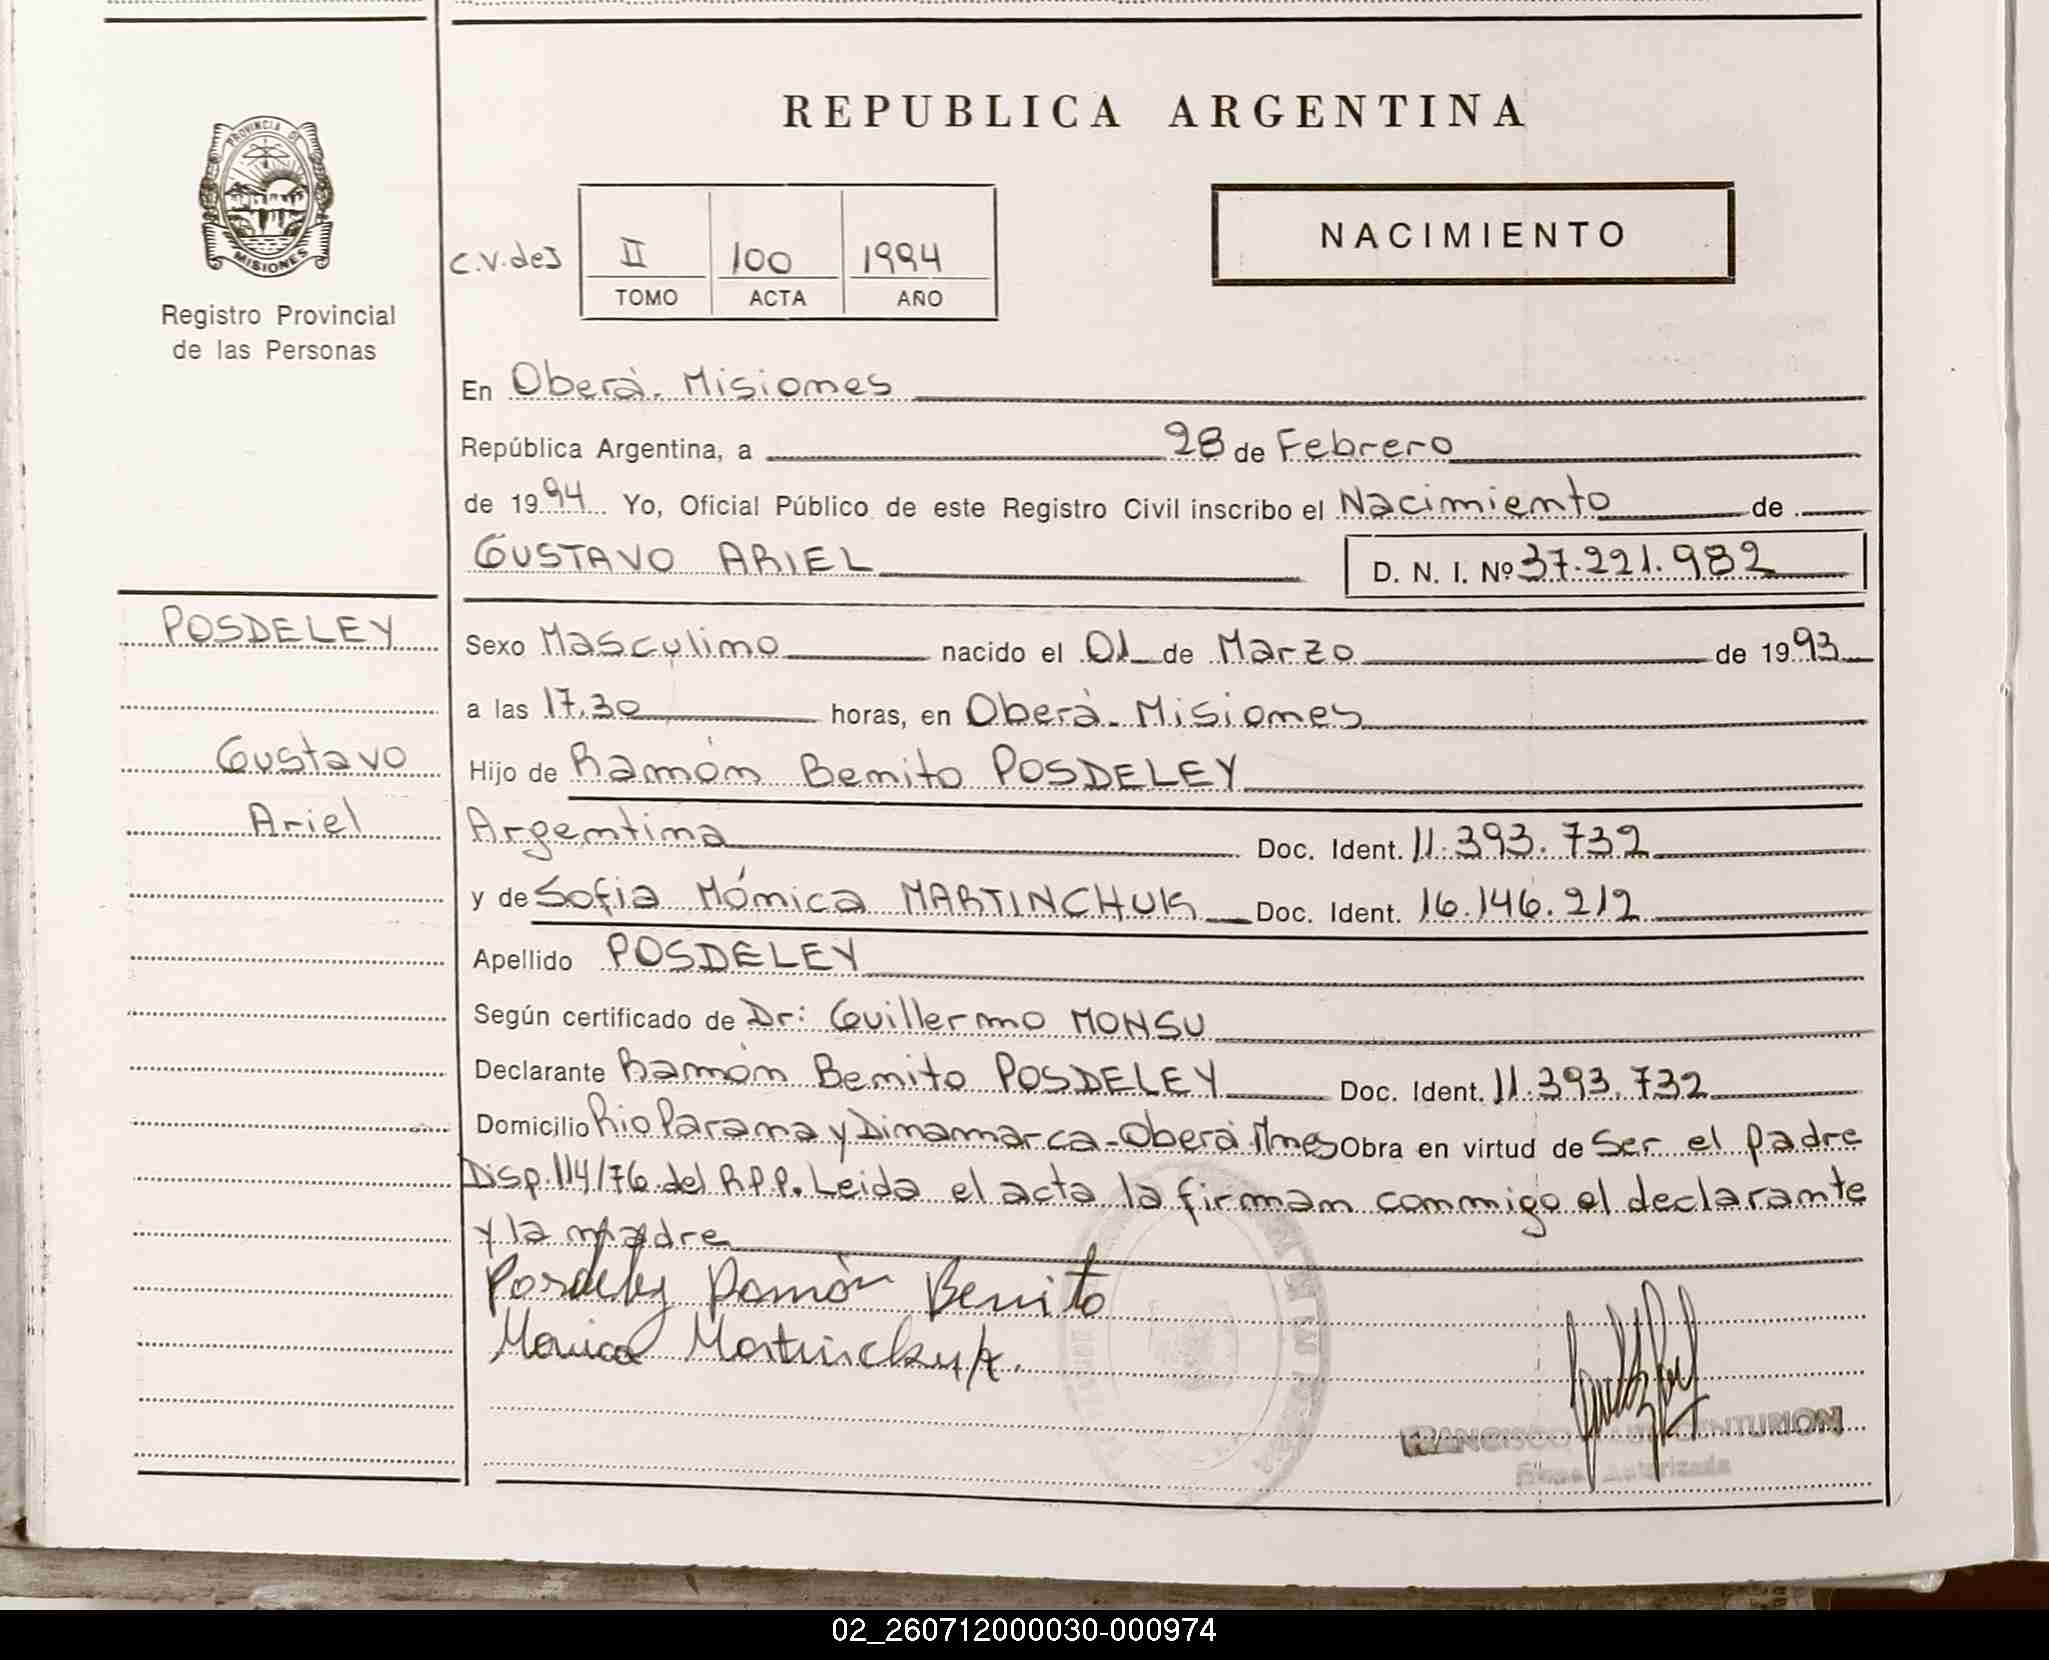 REPUBLICA ARGENTINA
PROVINCIA DE
MISIONES
Registro Provincial
de las Personas
C.V.des
II 100 1994
TOMO ACTA AÑO
NACIMIENTO
En Oberá. Misiones
República Argentina, a 28 de Febrero
de 1994 Yo, Oficial Público de este Registro Civil inscribo el Nacimiento de
GUSTAVO ARIEL D. N. I. Nº 37.221.982
POSDELEY
Gustavo
Ariel
Sexo Masculino nacido el 01 de Marzo de 1993
a las 17.30 horas, en Oberá. Misiones
Hijo de Ramón Benito POSDELEY
Argentina Doc. Ident. 11.393.732
y de Sofia Mónica MARTINCHUK Doc. Ident. 16.146.212
Apellido POSDELEY
Según certificado de Dr: Guillermo MONSU
Declarante Ramón Benito POSDELEY Doc. Ident. 11.393.732
Domicilio Rio Parana y Dinamarca-Oberá Mnes Obra en virtud de ser el padre
Disp. 114/76 del R.P.P. Leida el acta la firman conmigo el declarante
y la madre
Posdeley Ramón Benito
Monica Martinchuk.
FRANCISCO CENTURION
Firma Autorizada
02_260712000030-000974